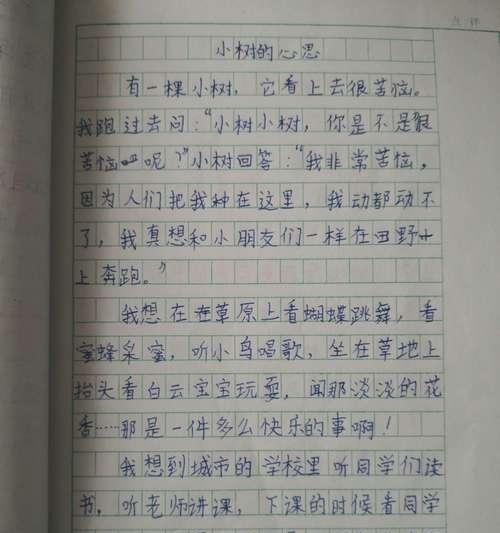 小树的心思
有一棵小树，它看上去很苦恼。
我跑过去问：“小树小树，你是不是很
苦恼呢？”小树回答：“我非常苦恼，
因为人们把我种在这里，我动都动不
了，我真想和小朋友们一样在田野
上奔跑。”
我想在在草原上看蝴蝶跳舞，看
蜜蜂采蜜，听小鸟唱歌，坐在草地上
抬头看白云宝宝玩耍，闻那淡淡的花
香……那是一件多么快乐的事啊！
我想到城市的学校里听同学们读
书，听老师讲课，下课的时候看同学